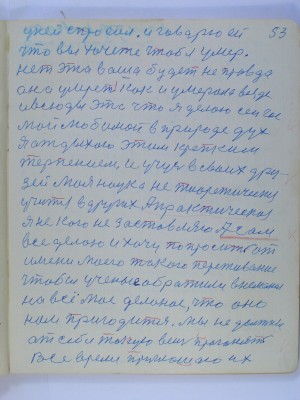 53
у ней спросил. и говорю ей
что вы хочете чтобы умер.
нет эта ваша будет не правда
она умрет как и умерала везде
и всюды это что я делаю сейчас
мой любимой в природе дух
я отдыхаю этим крепким
терпением и учусь в своих дру-
зей моя наука не теоретическая
учится в других А практическая
я не кого не заставляю Я сам
все делаю и хочу попросить от
имени моего такого переживание
чтобы ученые обратили внимание
на всё мое деланое, что оно
нам пригодится. мы не должны
от себя такую вещ прогонять
все время приглашаю их